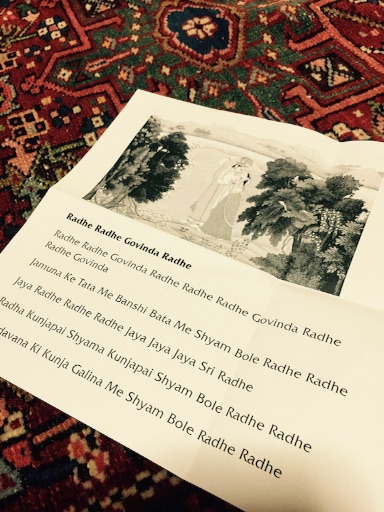 Radhe Radhe Govinda Radhe
Radhe Radhe Govinda Radhe Radhe Radhe Govinda Radhe
Radhe Govinda
Jamuna Ke Tata Me Banshi Bata Me Shyam Bole Radhe Radhe
Jaya Radhe Radhe Radhe Jaya Jaya Jaya Sri Radhe
Radha Kunjapai Shyama Kunjapai Shyam Bole Radhe Radhe
Ki Kunja Galina Me Shyam Bole Radhe Radhe